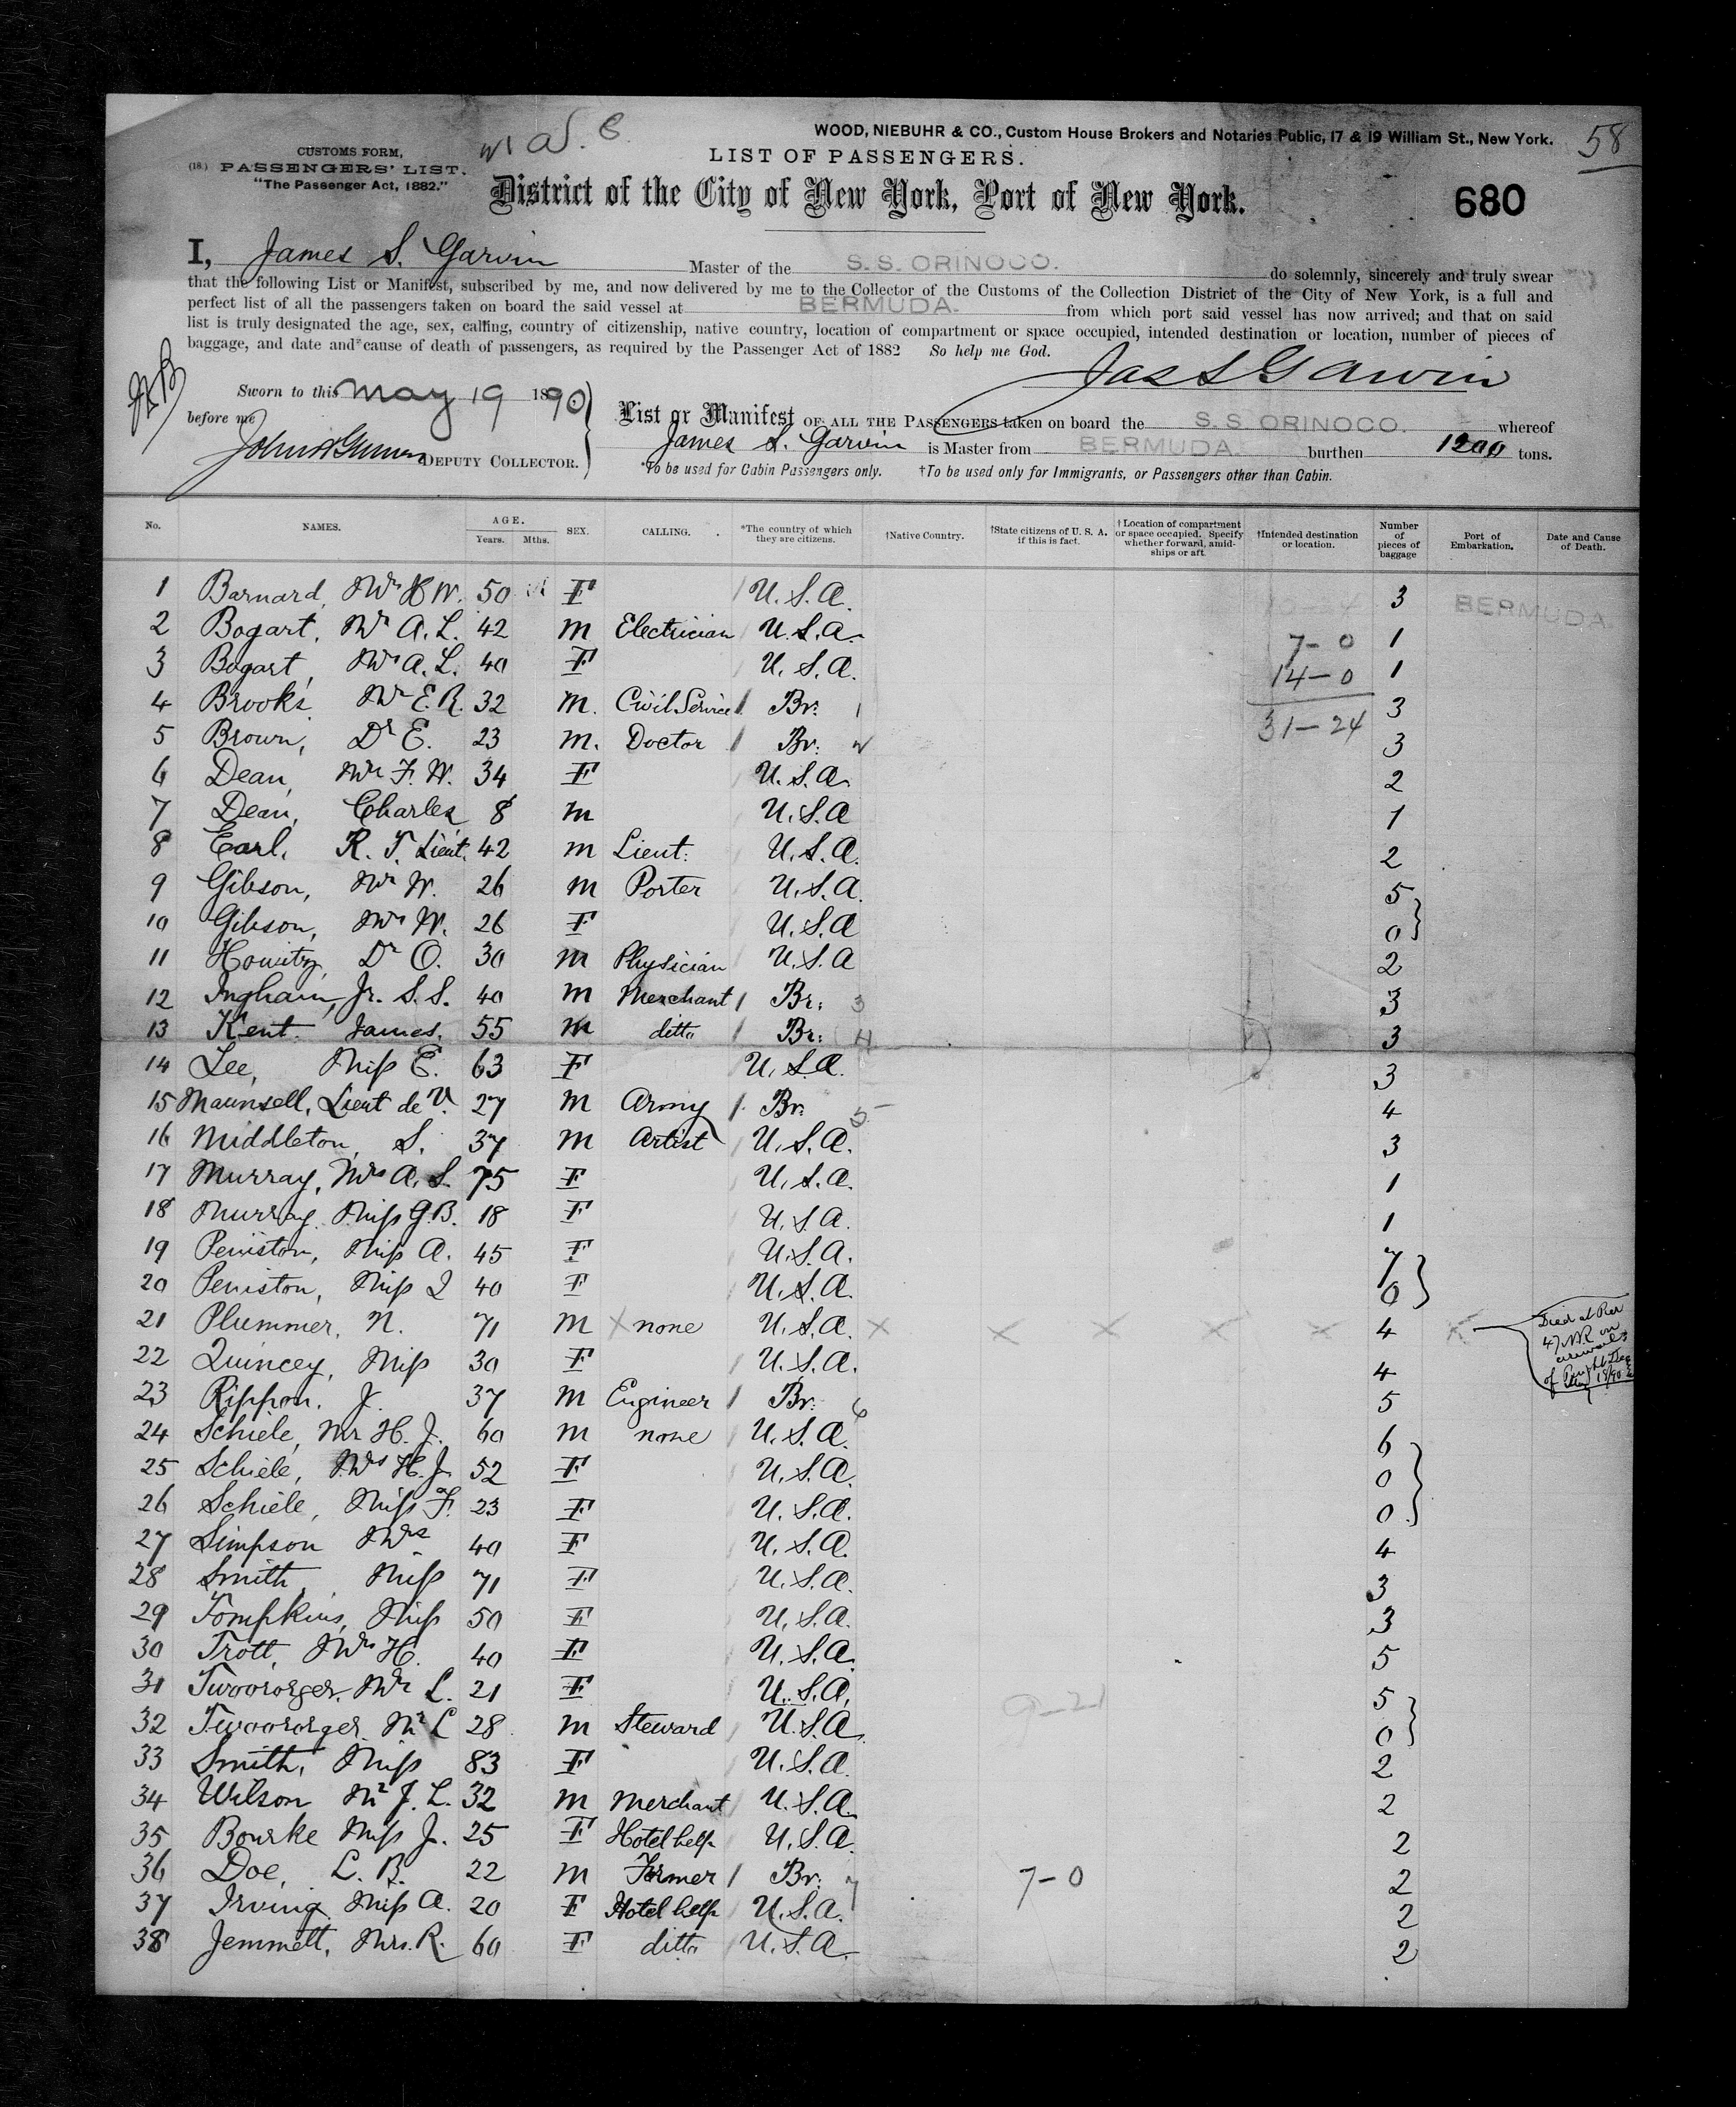 WOOD, NIEBUHR & CO., Custom House Brokers and Notaries Public, 17 & 19 William St., New York.
58
CUSTOMS FORM,
(18) PASSENGERS' LIST.
"The Passenger Act, 1882."
LIST OF PASSENGERS.
District of the City of New York, Port of New York.
680
I, James S. Garvin Master of the S. S. ORINOCO. do solemnly, sincerely and truly swear
that the following List or Manifest, subscribed by me, and now delivered by me to the Collector of the Customs of the Collection District of the City of New York, is a full and
perfect list of all the passengers taken on board the said vessel at BERMUDA. from which port said vessel has now arrived; and that on said
list is truly designated the age, sex, calling, country of citizenship, native country, location of compartment or space occupied, intended destination or location, number of pieces of
baggage, and date and cause of death of passengers, as required by the Passenger Act of 1882 So help me God.
Jas S Garvin
Sworn to this May 19 1890
before me
DEPUTY COLLECTOR.
List or Manifest OF ALL THE PASSENGERS taken on board the S. S. ORINOCO. whereof
James S. Garvin is Master from BERMUDA. burthen 1200 tons.
*To be used for Cabin Passengers only. †To be used only for Immigrants, or Passengers other than Cabin.
No. NAMES. AGE. Years. Mths. SEX. CALLING. *The country of which they are citizens. †Native Country. †State citizens of U. S. A. if this is fact. †Location of compartment or space occupied. Specify whether forward, amidships or aft. †Intended destination or location. Number of pieces of baggage Port of Embarkation. Date and Cause of Death.
1 Barnard, Mrs H W. 50 F U.S.A. 3 BERMUDA.
2 Bogart, Mr A. L. 42 M Electrician U.S.A. 7-0 1
3 Bogart, Mrs A. L. 40 F U.S.A. 14-0 1
4 Brooks Mr E. R. 32 M. Civil Service Br: 1 31-24 3
5 Brown, Dr E. 23 M. Doctor Br: 3
6 Dean, Mrs F. W. 34 F U.S.A. 2
7 Dean, Charles 8 M U.S.A 1
8 Earl, R. T. Lieut. 42 M Lieut. U.S.A. 2
9 Gibson, Mr W. 26 M Porter U.S.A. 5
10 Gibson, Mrs W. 26 F U.S.A 0
11 Dr O. 30 M Physician U.S.A 2
12 Ingham, Jr. S. S. 40 M Merchant Br: 3 3
13 Kent James. 55 M ditto Br: 4 3
14 Lee, Miss E. 63 F U.S.A. 3
15 Maunsell, Lieut de V. 27 M Army Br. 5 4
16 Middleton, S. 37 M Artist U.S.A. 3
17 Murray, Mrs A. S. 75 F U.S.A. 1
18 Murray. Miss G. B. 18 F U.S.A. 1
19 Peniston, Miss A. 45 F U.S.A. 7
20 Peniston, Miss 40 F U.S.A. 0
21 Plummer, N. 71 M X none U.S.A. X X X X X 4 X Died at Pier 47 NR on arrival of
22 Quincey, Miss 30 F U.S.A. 4
23 Rippon, J. 37 M Engineer Br: 6 5
24 Schiele, Mr H. J. 60 M none U.S.A. 6
25 Schiele, Mrs H. J. 52 F U.S.A. 0
26 Schiele, Miss F. 23 F U.S.A. 0
27 Simpson Mrs 40 F U.S.A. 4
28 Smith, Miss 71 F U.S.A. 3
29 Tompkins, Miss 50 F U.S.A. 3
30 Trott, Mrs H. 40 F U.S.A. 5
31 Twororger, Mrs L. 21 F U.S.A. 5
32 Twororger Mr L 28 M Steward U.S.A 0
33 Smith, Miss 83 F U.S.A. 2
34 Wilson Mr J. L. 32 M Merchant U.S.A. 2
35 Bourke Miss J. 25 F Hotel help U.S.A. 2
36 Doe, L. B. 22 M Farmer Br: 7 7-0 2
37 Irving Miss A. 20 F Hotel help U.S.A. 2
38 Jemmett, Mrs. R. 60 F ditto U.S.A. 2